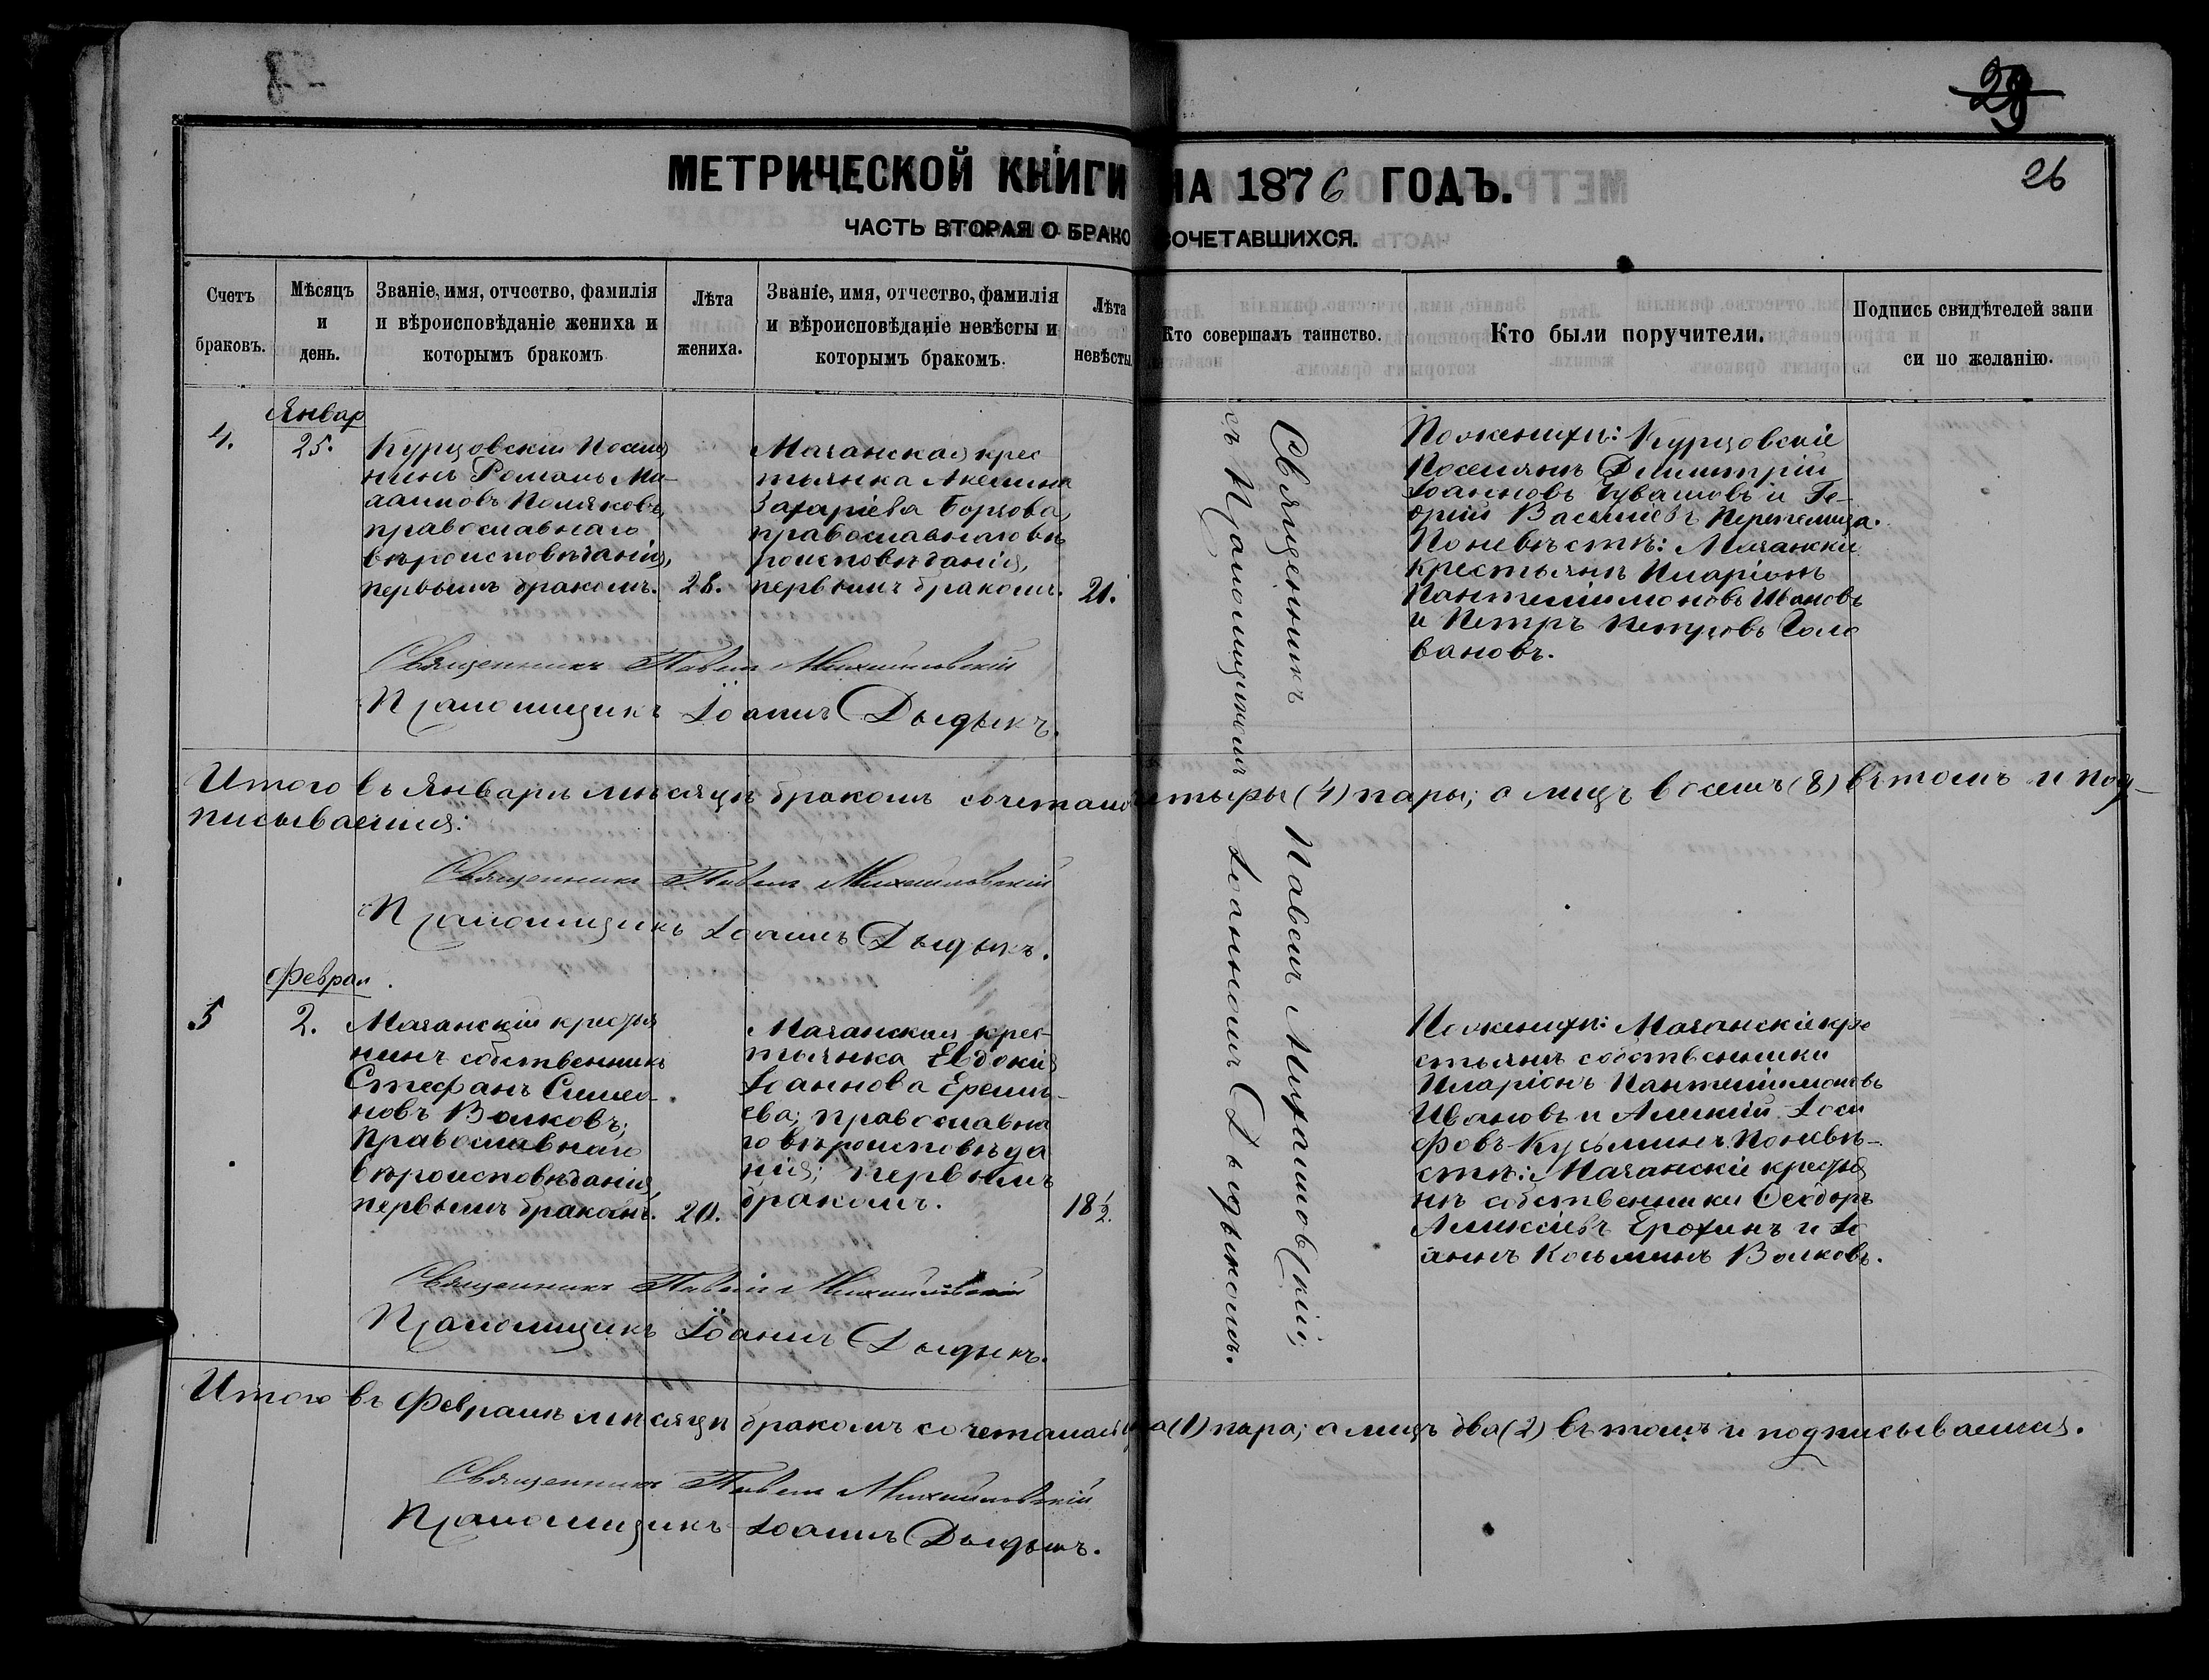 29
26
МЕТРИЧЕСКОЙ КНИГИ НА 1876 ГОДЪ.
ЧАСТЬ ВТОРАЯ О БРАКОСОЧЕТАВШИХСЯ.
Счетъ браковъ.
Мѣсяцъ и день.
Званіе, имя, отчество, фамилія
и вѣроисповѣданіе жениха и
которымъ бракомъ
Лѣта жениха.
Званіе, имя, отчество, фамилія
и вѣроисповѣданіе невѣсты и
которымъ бракомъ.
Лѣта невѣсты
Кто совершалъ таинство.
Кто были поручители.
Подпись свидѣтелей запи
си по желанію.
Январ
4.
25.
Курцовскій Поселя
нинъ Романъ Ма-
Поляковъ,
православнаго
вѣроисповѣданія,
первымъ бракомъ.
28.
Мачанская крес
тьянка Акелина
Захаріева Борзова,
православнаго вѣ
роисповѣданія,
первымъ бракомъ.
21.
Священникъ Павелъ Михайловскій;
съ Псаломщикомъ Іоанномъ Дыдыкомъ.
По женихѣ: Курцовскіе
Поселяне Димитрій
Іоанновъ Чувашовъ и Ге-
оргій Васильевъ Перепелица.
По невѣстѣ: Мачанскіе
крестьяне Иларіонъ
Пантелимоновъ Ивановъ
и Петръ Петровъ Голо
вановъ.
Священникъ Павелъ Михайловскій
Псаломщикъ Іоаннъ Дыдыкъ.
Итого въ Январѣ мѣсяцѣ бракомъ сочетано четыры (4) пары; а лицъ восемъ (8) въ томъ и под-
писываемся:
Священникъ Павелъ Михайловскій
Псаломщикъ Іоаннъ Дыдыкъ.
Феврал
5
2.
Мачанскій крестья
нинъ собственникъ
Стефанъ Симео-
новъ Волковъ;
Православнаго
вѣроисповѣданія,
первымъ бракомъ.
20.
Мачанская крес-
тьянка Евдокія
Іоаннова Ереми-
ева; православна
го вѣроисповѣда
нія; первымъ
бракомъ.
18½.
По женихѣ: Мачанскіе кре
стьяне собственники
Иларіонъ Пантелимоновъ
Ивановъ и Алексій Іоси
фовъ Кузьминъ По невѣ-
стѣ: Мачанскіе крестья
нѣ собственники Ѳеодоръ
Алексіевъ Ерохинъ и Іо
аннъ Козьминъ Волковъ.
Священникъ Павелъ Михайловскій
Псаломщикъ Іоаннъ Дыдыкъ.
Итого въ Февралѣ мѣсяцѣ бракомъ сочеталась одна (1) пара; а лицъ два (2) въ томъ и подписываемся.
Священникъ Павелъ Михайловскій
Псаломщикъ Іоаннъ Дыдыкъ.